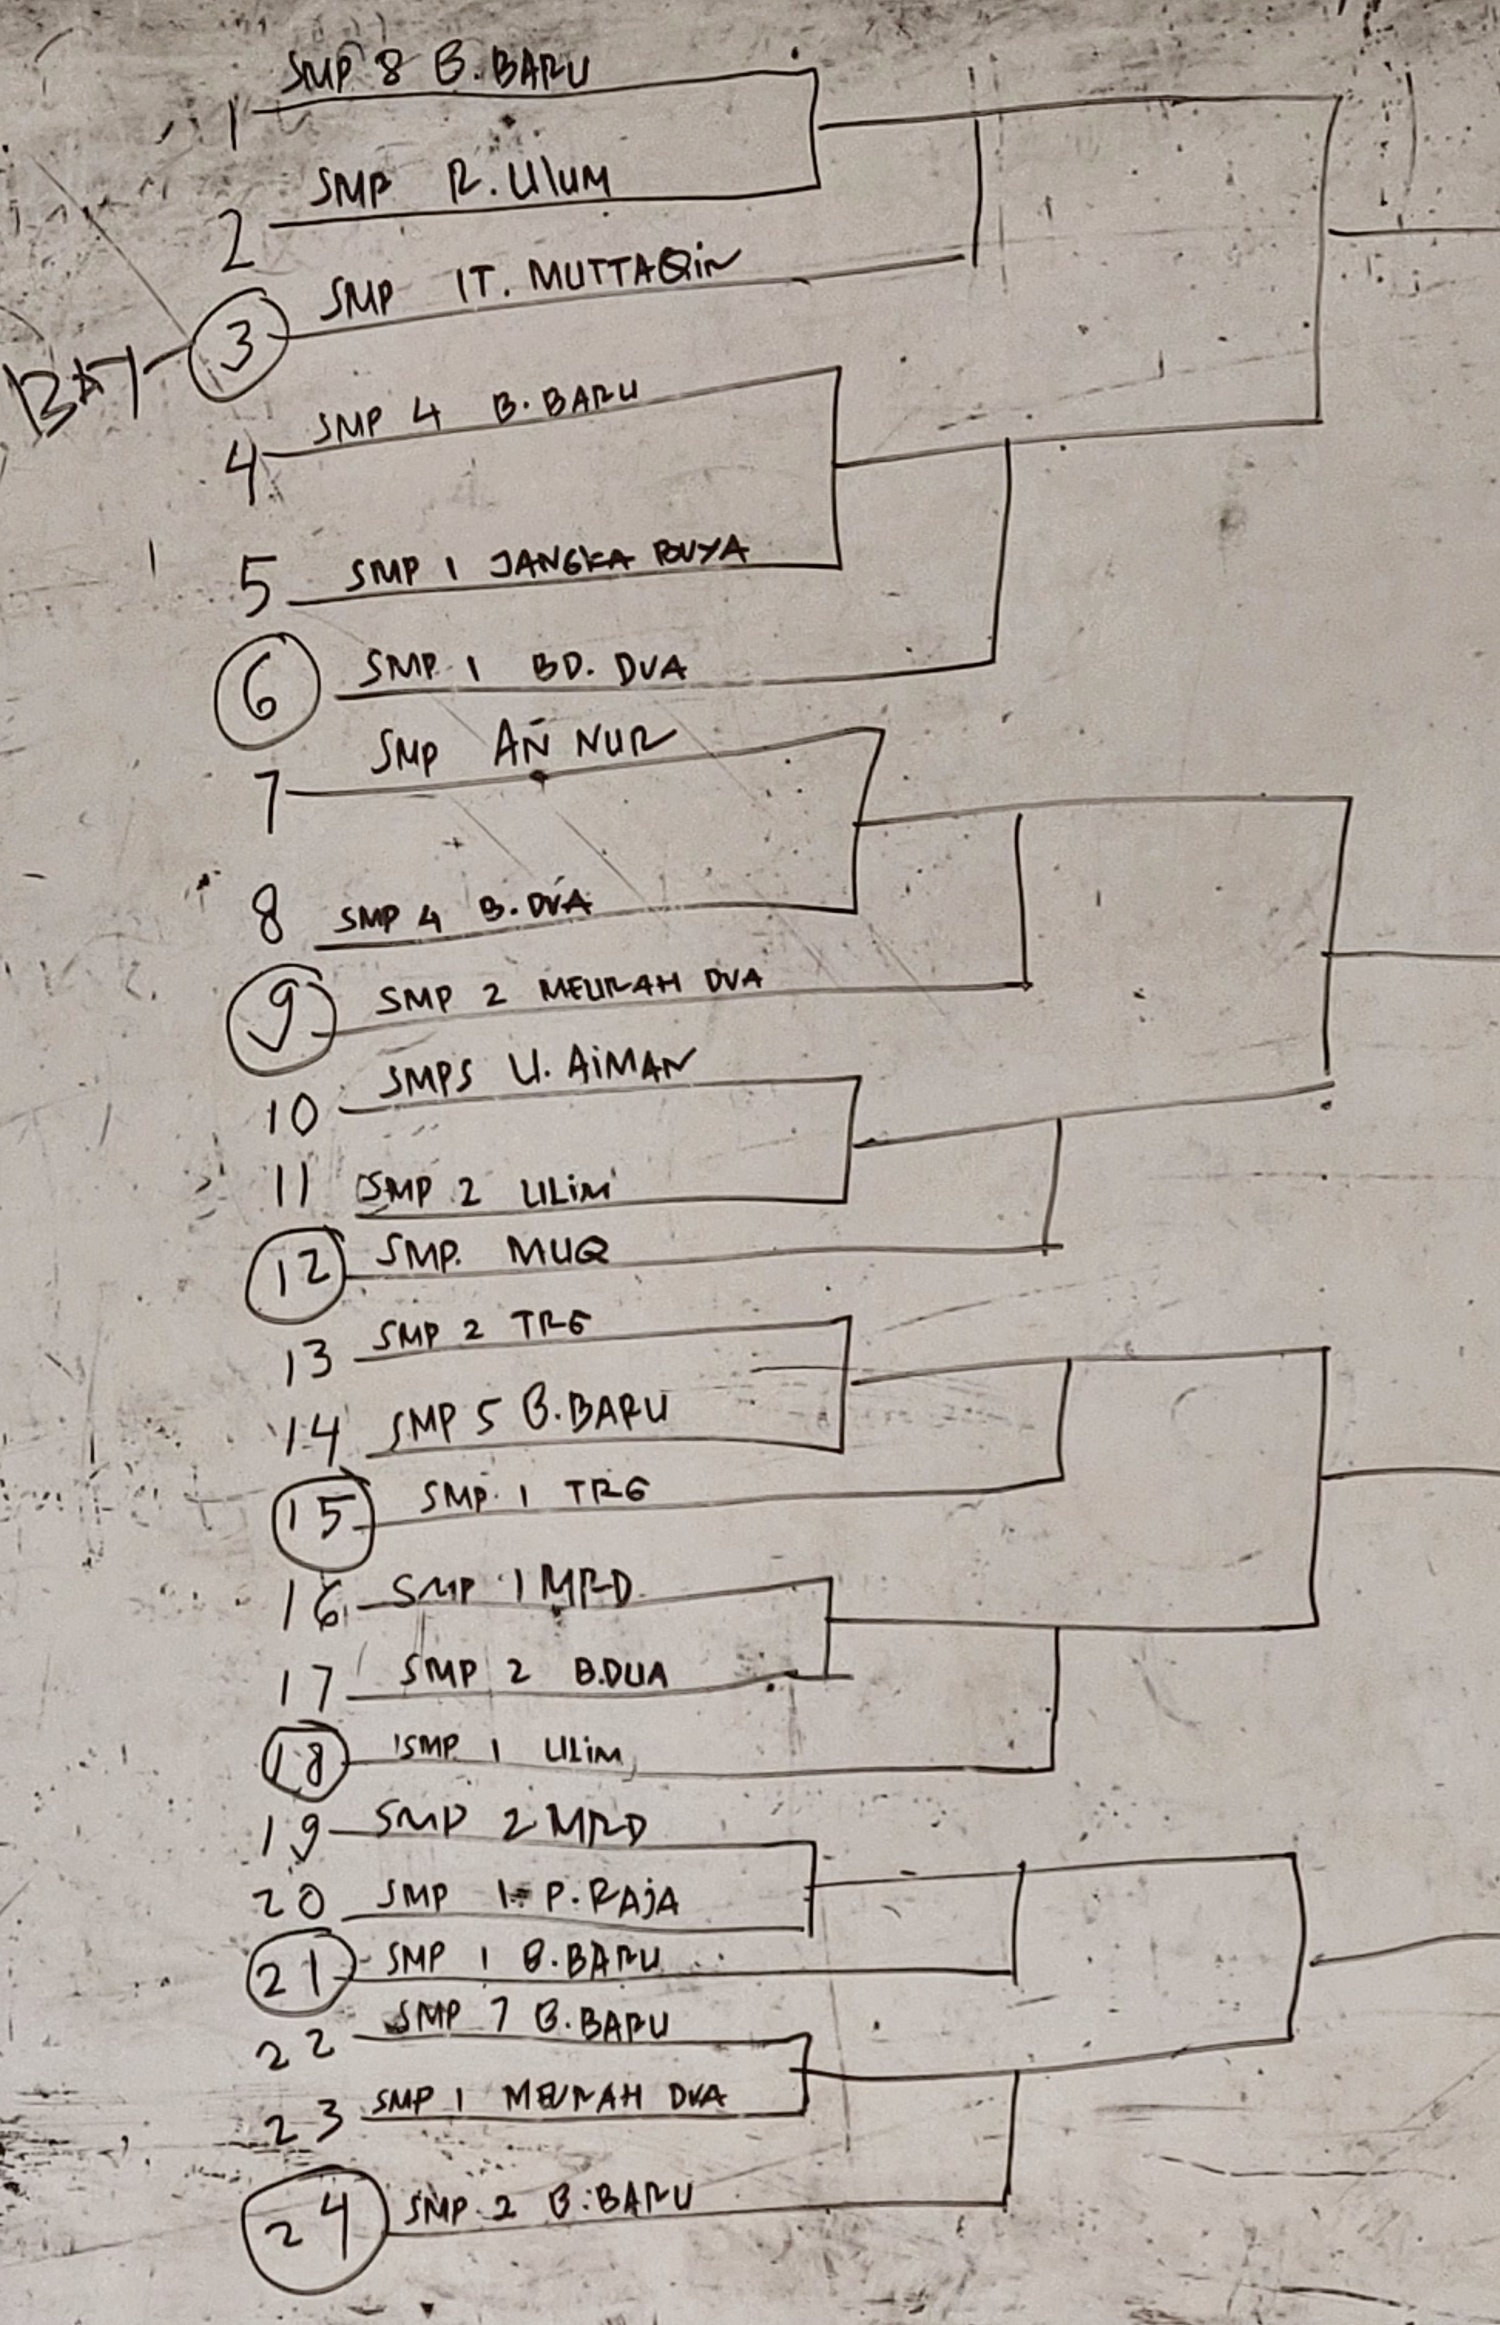 1 SMP 8 B. BARU
2 SMP R. Ulum
BAY 3 SMP IT. MUTTAQiN
4 SMP 4 B. BARU
5 SMP 1 JANGKA BUYA
6 SMP 1 BD. DUA
7 SMP AN NUR
8 SMP 4 B. DUA
9 SMP 2 MEURAH DUA
10 SMPS U. AiMAN
11 SMP 2 ULiM
12 SMP. MUQ
13 SMP 2 TRG
14 SMP 5 B. BARU
15 SMP. 1 TRG
16 SMP 1 MRD
17 SMP 2 B.DUA
18 SMP 1 ULiM
19 SMP 2 MRD
20 SMP 1 P. RAjA
21 SMP 1 B. BARU
22 SMP 7 B. BARU
23 SMP 1 MEURAH DUA
24 SMP 2 B. BARU